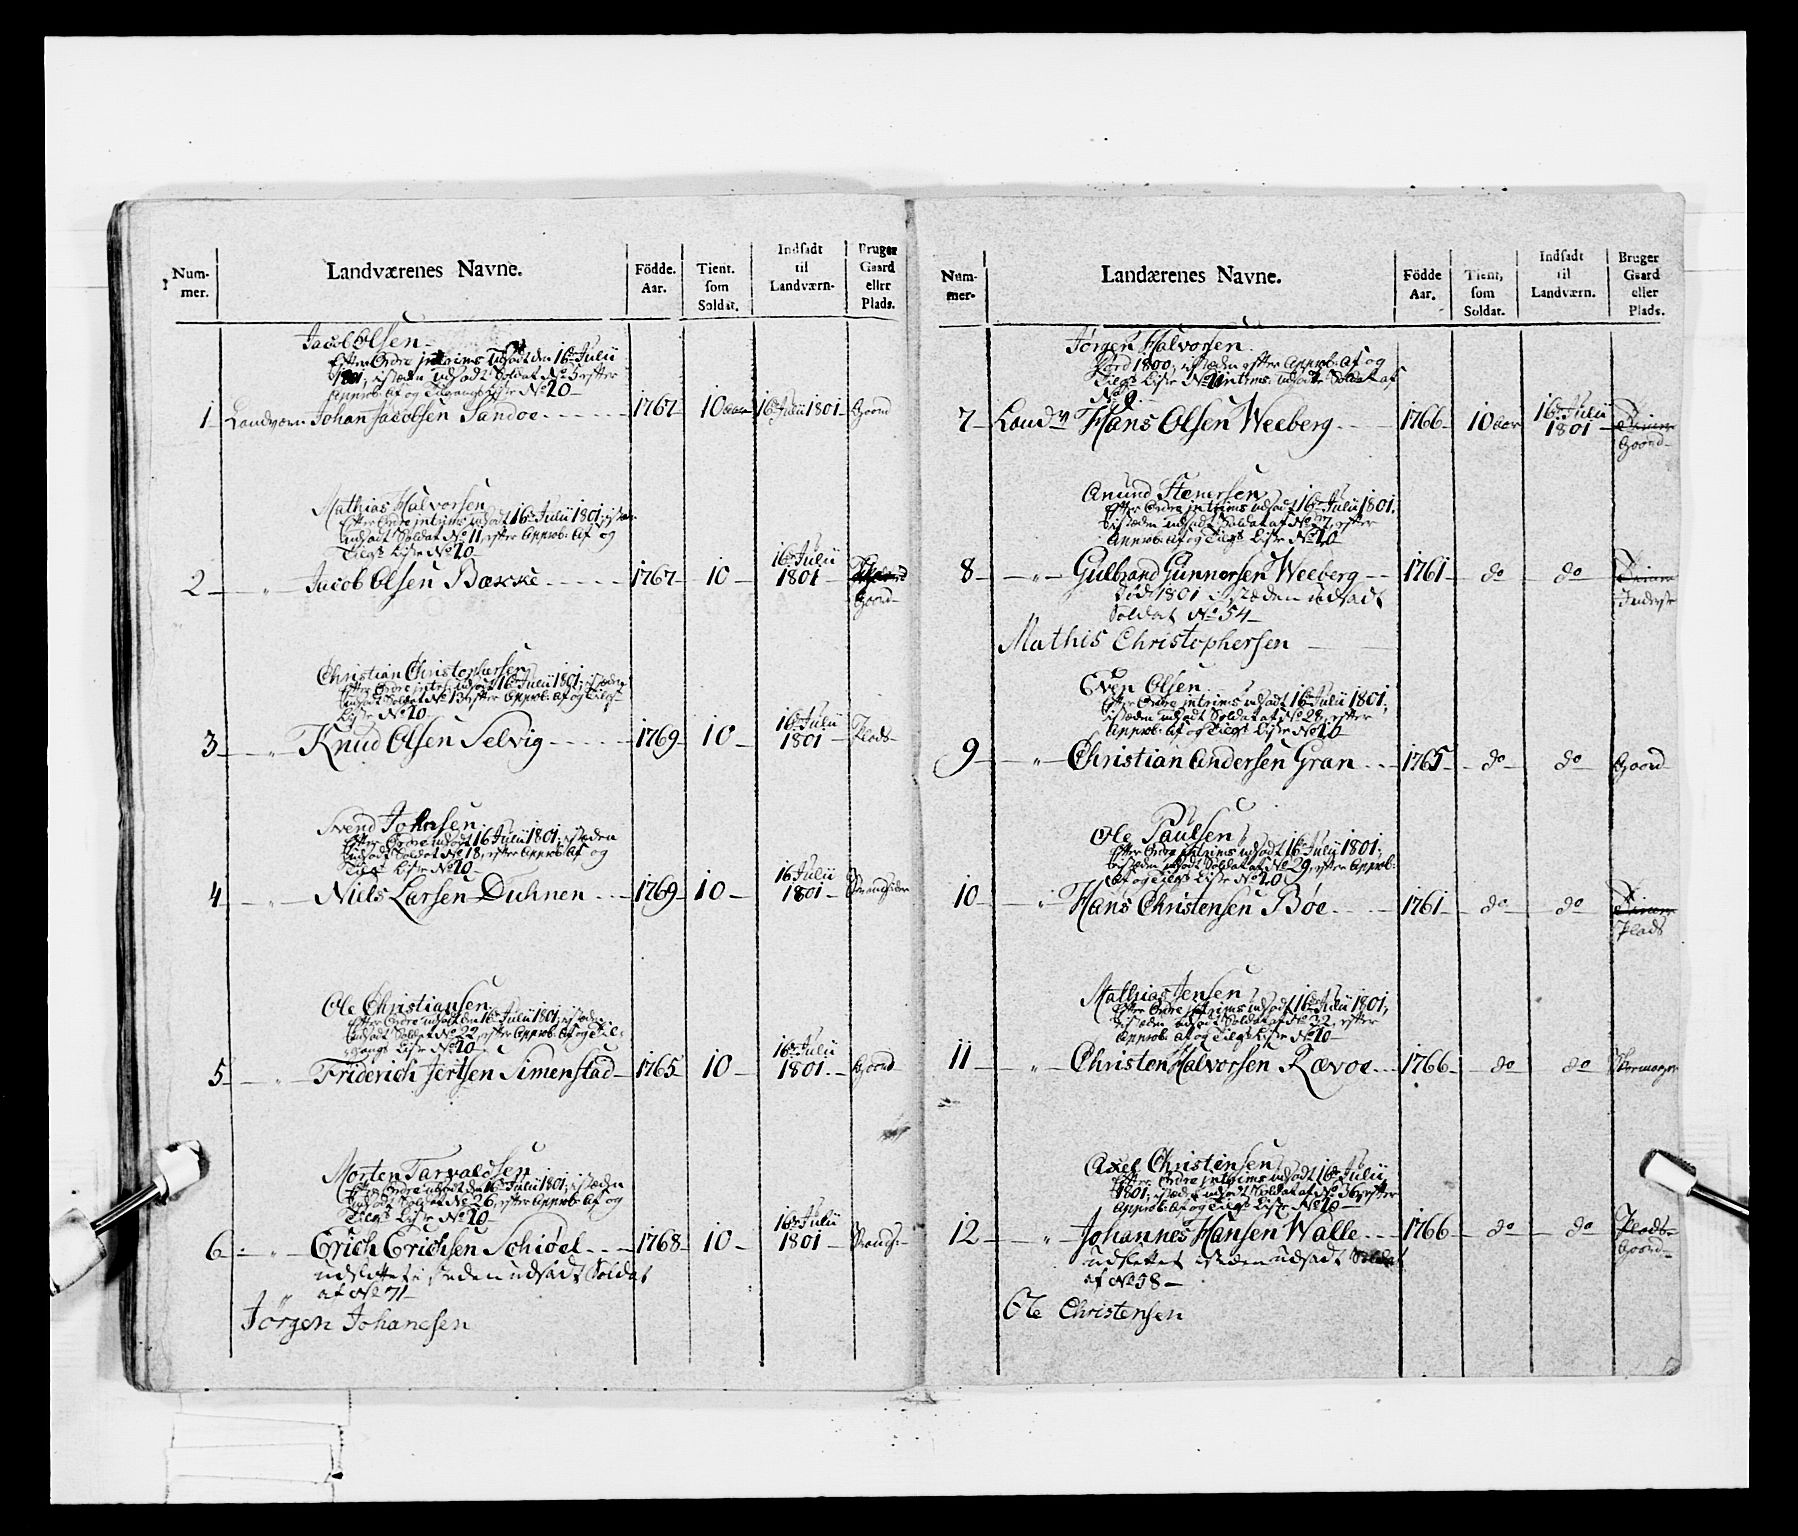 Num-
mer.
Landværenes Navne.
Födde.
Aar.
Tient.
som
Soldat.
Indsadt
til
Landværn.
Bruger
Gaard
eller
Plads.
Jacob Olsen
Efter Ordre intrims udsadt den 16de Julii
1801, istæden udsadt Soldat No 5 efter
Approb: Af og Tilgangs Liste No 10
1 Landværn Johan Jacobsen Sandoe 1767 10 aar 16de Julii 1801 Gaard
Mathias Halvorsen
Efter Ordre intrims udsadt 16de Julii 1801, istæden
udsadt Soldat No 11, efter Approb: Af og
Tilgs Liste No 10
2 " Jacob Olsen Bakke 1767 10 16de Julii
1801
Gaard
Christian Christophersen
Efter Ordre intr: udsadt 16de Julii 1801, istæden
udsadt Soldat No 13 efter Approb: Af og Tilgs
Liste No 10
3 " Knud Olsen Selvig 1769 10 16de Julii
1801 Plads
Svend Johnsen
Efter Ordre udsadt 16 Julii 1801, istæden
udsadt Soldat No 18, efter Approb: Af og
Tilgs Liste No 10
4 " Niels Larsen Duhnen 1769 10 16 Julii
1801 Strandsider
Ole Christiansen
Efter Ordre udsadt den 16de Julii 1801, istæden
udsadt Soldat No 22, efter Approb: Af og Til-
gangs Liste No 10
5 " Friderich Jertsen Simenstad 1765 10 16de Julii
1801 Gaard
Morten Tarvaldsen
Efter Ordre udsadt den 16de Julii 1801, istæden
udsadt Soldat No 26, efter Approb: Af og
Tilgs Liste No 10
6 " Erich Erichsen Schiöel 1768 10 16de Julii
1801 Strands:
udslettet i steden udsadt Soldat
af No 71
Jörgen Johanesen
Num-
mer.
Landærenes Navne.
Födde
Aar.
Tient,
som
Soldat.
Indsadt
til
Landværn.
Bruger
Gaard
eller
Plads.
Jørgen Halvorsen
1800, istæden efter Approb: Af og
Tilgs Liste No intrms: udsadt Soldat af
No 9
7 Landv Hans Olsen Weeberg 1766 10 aar 16de Julii
1801
Gaard
Anund Stenersen
Efter Ordre intrims udsadt 16de Julii 1801,
istæden udsadt Soldat af No 27, efter
Approb: Af og Tilgs Liste No 10
8 " Gulbrand Gunnersen Weeberg 1761 do do
Inderste
1801 i stæden udsadt
Soldat No 54
Mathis Christophersen
Even Olsen
Efter Ordre intrims udsadt 16de Julii 1801,
istæden udsadt Soldat af No 28, efter
Approb: Af og Tilgs Liste No 10
9 " Christian Andersen Gran 1765 do do Gaard
Ole Paulsen
Efter Ordre intrims udsadt 16de Julii 1801,
istæden udsadt Soldat af No 29, efter Approb:
Af og Tilgs Liste No 10
10 " Hans Christensen Bøe 1761 do do
Plads
Mathias Jensen
Efter Ordre intrims udsadt 16de Julii 1801,
istæden udsadt Soldat af No 32, efter
Approb: Af og Tilgs Liste No 10
11 " Christen Halvorsen Rævoe 1766 do do
Axel Christensen
Efter Ordre intrims udsadt 16de Julii
1801, istæden udsadt Soldat af No 36, efter
Approb: Af og Tilgs Liste No 10
12 " Johannes Hansen Walle 1766 do do Plads
Gaard
udslettet isteden udsadt Soldat
af No 58
Ole Christensen